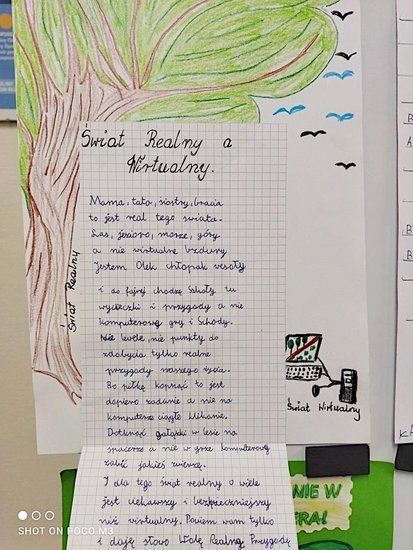 Świat Realny a
Wirtualny.
Mama, tata, siostry, bracia
to jest real tego świata.
Las, jezioro, morze, góry
a nie wirtualne bzdury
Jestem Olek chłopak wesoły
i do fajnej chodzę Szkoły tu
wycieczki i przygody a nie
komputerowe gry i Schody.
Nie levele, nie punkty do
zdobycia tylko realne
przygody naszego życia.
Bo piłkę kopnąć to jest
dopiero zadanie a nie na
komputerze ciągłe klikanie.
Dotknąć gałązki w lesie na
spacerze a nie w grze komputerowej
zabić jakieś zwierzę.
I dla tego świat realny o wiele
jest ciekawszy i bezpieczniejszy
niż wirtualny. Powiem wam tylko
i daję słowo Wolę Realną Przygodę
Świat Realny
Świat Wirtualny
NIE W
ERA!
SHOT ON POCO M3